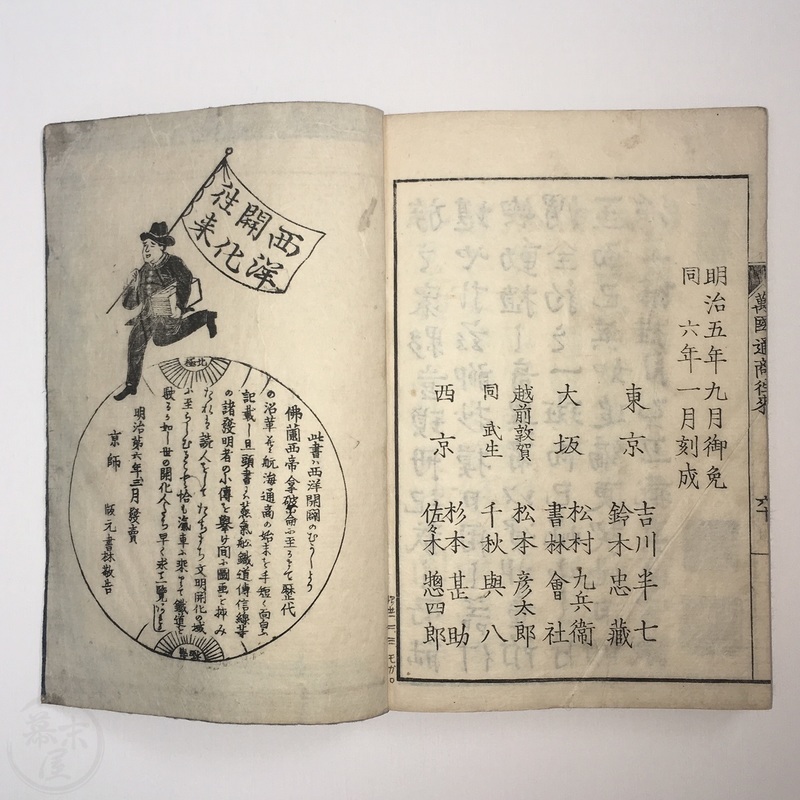 明治五年九月御免
同 六年一月刻成
東京 吉川半七
鈴木忠藏
大坂 松村九兵衞
書林會社
越前敦賀 松本彦太郎
同 武生 千秋與八
西京 杉本甚助
佐々木惣四郎
萬國通商往來
六十
西洋
開化
往来
北極
此書ハ西洋開闢のむかしより
佛蘭西帝拿破崙に至るまで歴代
の沿革并航海通商の始末を手短く面白く
記載し且頭書に蒸氣船鐵道傳信線等
の諸發明者の小傳を擧け間に圖画を挿み
読人をして たちまち文明開化の域
に至らしむる 恰も瀛車に乘して鐵道を
歌るが如し世の開化人 早く求て一覧
明治第六年三月發賣
京師 版元書林敬告
幕末屋